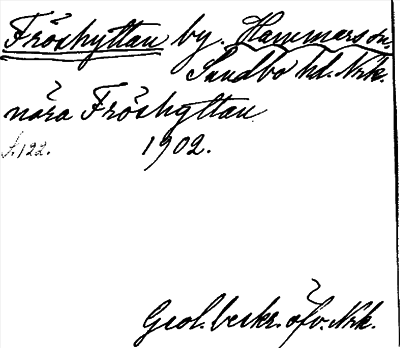 Fröshyttan by. Hammars sn.
Sundbo hd. Nrk.
nära Fröshyttan
s. 122. 1902.
Geol. beskr. öfv. Nrk.